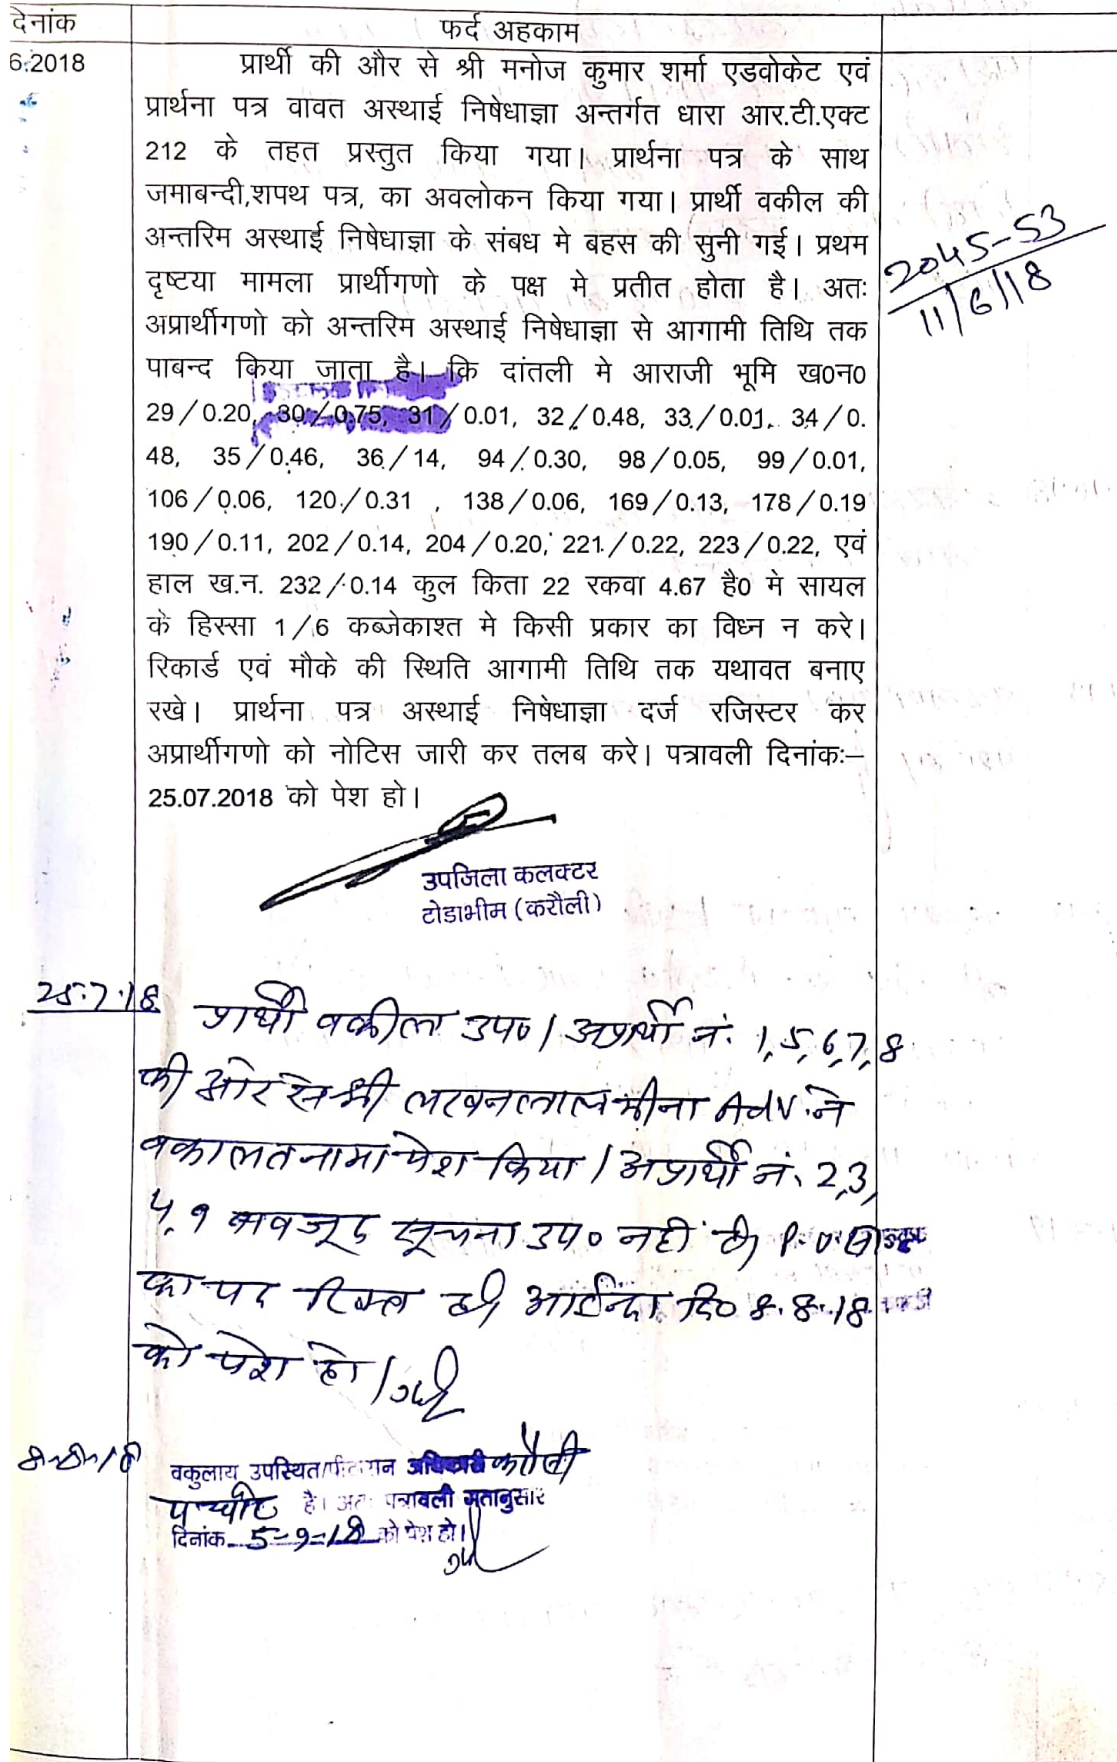 देनांक
फर्द अहकाम
6.2018
प्रार्थी की और से श्री मनोज कुमार शर्मा एडवोकेट एवं
प्रार्थना पत्र वावत अस्थाई निषेधाज्ञा अन्तर्गत धारा आर.टी.एक्ट
212 के तहत प्रस्तुत किया गया। प्रार्थना पत्र के साथ
जमाबन्दी,शपथ पत्र, का अवलोकन किया गया। प्रार्थी वकील की
अन्तरिम अस्थाई निषेधाज्ञा के संबध मे बहस की सुनी गई। प्रथम
दृष्टया मामला प्रार्थीगणो के पक्ष मे प्रतीत होता है। अतः
अप्रार्थीगणो को अन्तरिम अस्थाई निषेधाज्ञा से आगामी तिथि तक
पाबन्द किया जाता है। कि दांतली मे आराजी भूमि ख0न0
29/0.20, 30/0.75, 31/0.01, 32/0.48, 33/0.01, 34/0.
48, 35/0.46, 36/14, 94/0.30, 98/0.05, 99/0.01,
106/0.06, 120/0.31 , 138/0.06, 169/0.13, 178/0.19
190/0.11, 202/0.14, 204/0.20, 221/0.22, 223/0.22, एवं
हाल ख.न. 232/0.14 कुल किता 22 रकवा 4.67 है0 मे सायल
के हिस्सा 1/6 कब्जेकाश्त मे किसी प्रकार का विध्न न करे।
रिकार्ड एवं मौके की स्थिति आगामी तिथि तक यथावत बनाए
रखे। प्रार्थना पत्र अस्थाई निषेधाज्ञा दर्ज रजिस्टर कर
अप्रार्थीगणो को नोटिस जारी कर तलब करे। पत्रावली दिनांकः–
25.07.2018 को पेश हो।
2045-53
11/6/18
उपजिला कलक्टर
टोडाभीम (करौली)
25.7.18
प्रार्थी वकील उप०। अप्रार्थी नं. 1,5,6,7,8
की ओर से श्री लखनलाल मीना Adv. ने
वकालतनामा पेश किया। अप्रार्थी नं. 2,3,
4,9 बावजूद सूचना उप० नहीं है। P.O.
का पद रिक्त है। आईन्दा दि० 8.8.18
को पेश हो।
8-8-18
वकुलाय उपस्थित। पीठासीन अधिकारी करौली
है। अतः पत्रावली मतानुसार
दिनांक 5-9-18 को पेश हो।